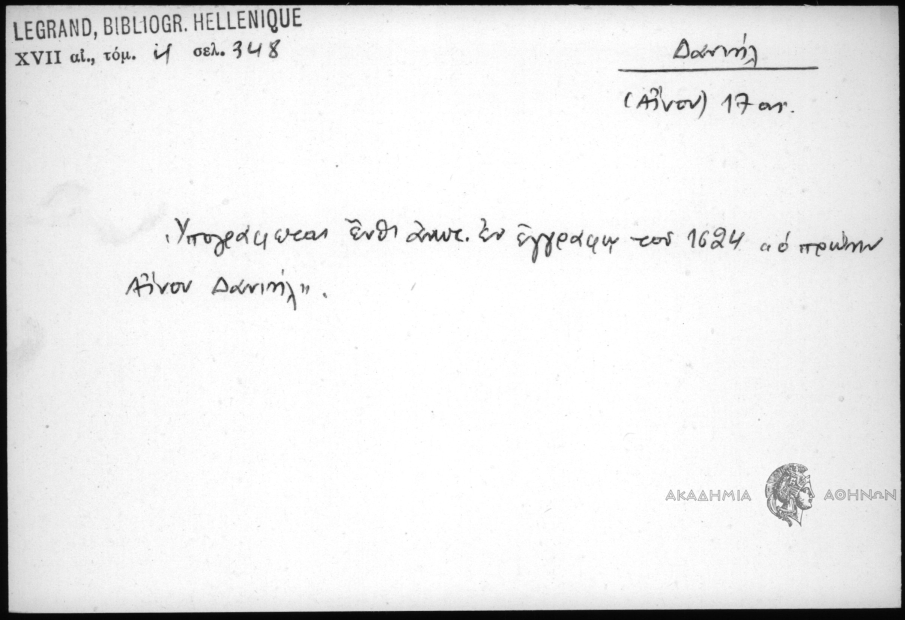 LEGRAND, BIBLIOGR. HELLENIQUE
XVII αἰ., τόμ. σελ. 348
Δανιήλ
(Αἴνου) 17 αι.
Ὑπογράφεται ἔνθ' ἀνωτ. ἐν ἐγγράφῳ τοῦ 1624 «ὁ πρώην
Αἴνου Δανιήλ».
ΑΚΑΔΗΜΙΑ ΑΘΗΝΩΝ